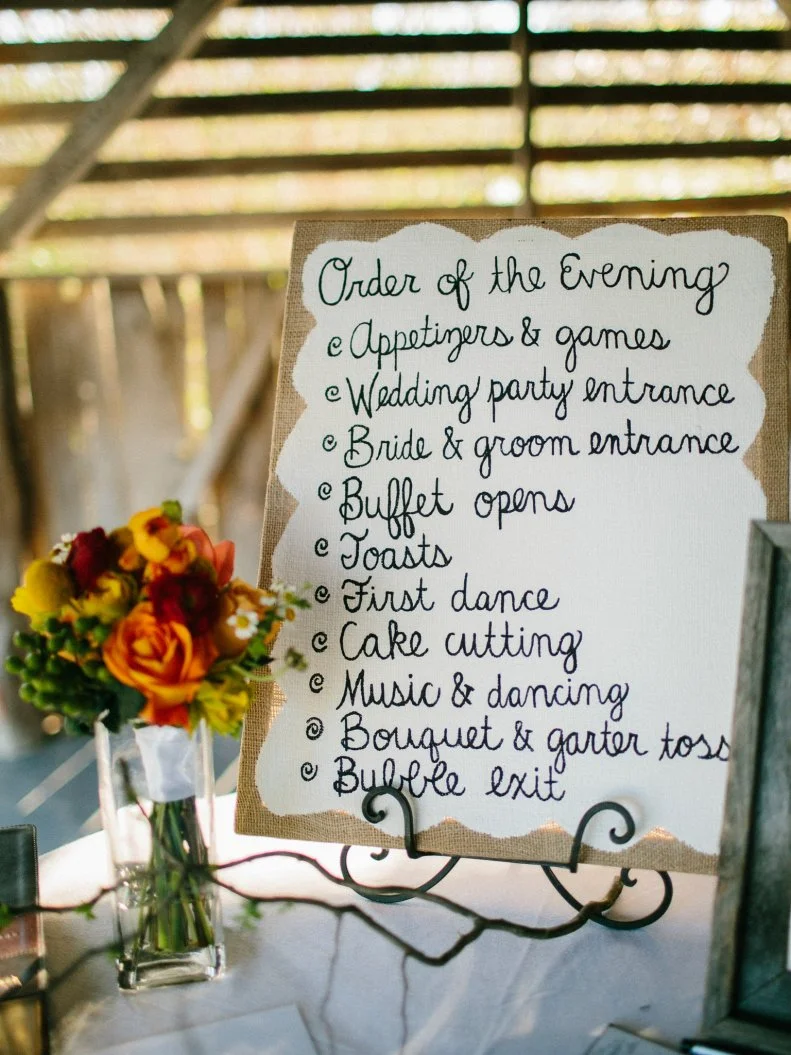 Order of the Evening
Appetizers & games
Wedding party entrance
Bride & groom entrance
Buffet opens
Toasts
First dance
Cake cutting
Music & dancing
Bouquet & garter toss
Bubble exit